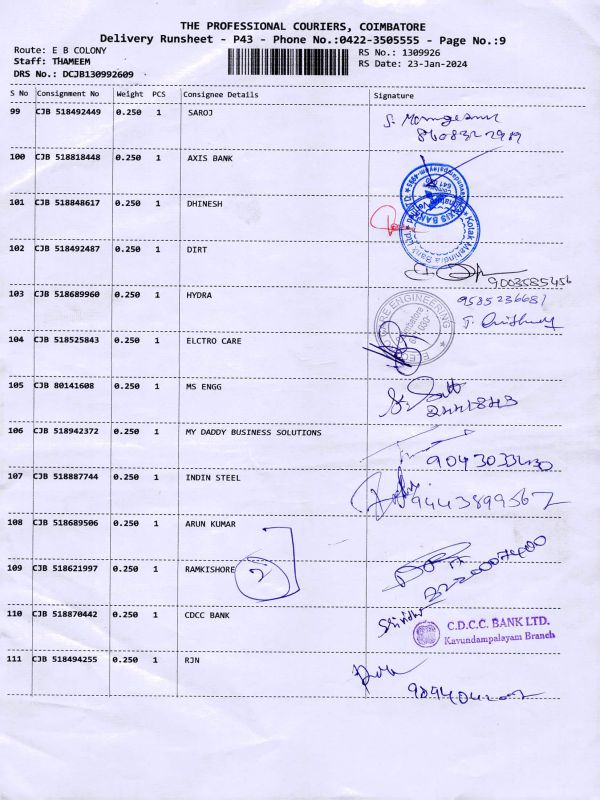 THE PROFESSIONAL COURIERS, COIMBATORE
Delivery Runsheet - P43 - Phone No.:0422-3505555 - Page No.:9
Route: E B COLONY
RS No.: 1309926
Staff: THAMEEM
RS Date: 23-Jan-2024
DRS No.: DCJB130992609
S No Consignment No Weight PCS Consignee Details Signature
99 CJB 518492449 0.250 1 SAROJ
100 CJB 518818448 0.250 1 AXIS BANK
101 CJB 518848617 0.250 1 DHINESH
Kotak Mahindra Bank Ltd
102 CJB 518492487 0.250 1 DIRT
9003585456
103 CJB 518689960 0.250 1 HYDRA
9585236681
104 CJB 518525843 0.250 1 ELCTRO CARE
105 CJB 80141608 0.250 1 MS ENGG
2441843
106 CJB 518942372 0.250 1 MY DADDY BUSINESS SOLUTIONS
9043033430
107 CJB 518887744 0.250 1 INDIN STEEL
9443899567
108 CJB 518689506 0.250 1 ARUN KUMAR
109 CJB 518621997 0.250 1 RAMKISHORE 2
110 CJB 518870442 0.250 1 CDCC BANK
C.D.C.C. BANK LTD.
Kavundampalayam Branch
111 CJB 518494255 0.250 1 RJN